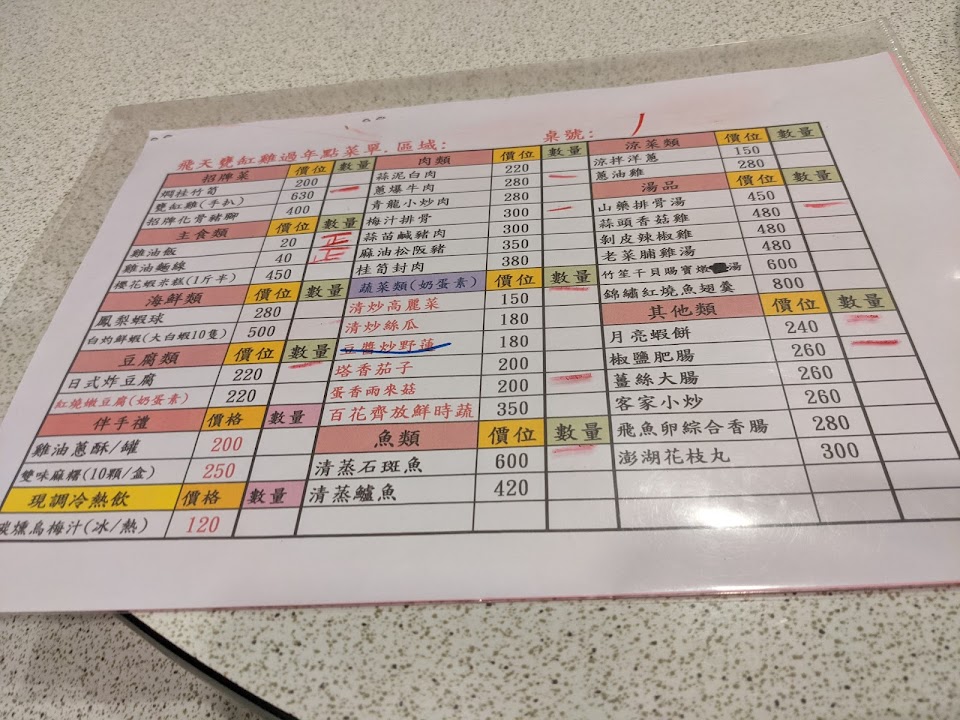 飛天甕缸雞過年點菜單.區域: 桌號:
招牌菜 價位 數量
燜桂竹筍 200
甕缸雞(手扒) 630
招牌化骨豬腳 400
主食類 價位 數量
雞油飯 20 正
雞油麵線 40 正
櫻花蝦米糕(1斤半) 450
海鮮類 價位 數量
鳳梨蝦球 280
白灼鮮蝦(大白蝦10隻) 500
豆腐類 價位 數量
日式炸豆腐 220
紅燒嫩豆腐(奶蛋素) 220
伴手禮 價格 數量
雞油蔥酥/罐 200
雙味麻糬(10顆/盒) 250
現調冷熱飲 價格 數量
炭燻烏梅汁(冰/熱) 120
肉類 價位 數量
蒜泥白肉 220
蔥爆牛肉 280
青龍小炒肉 280
梅汁排骨 300
蒜苗鹹豬肉 300
麻油松阪豬 350
桂筍封肉 380
蔬菜類(奶蛋素) 價位 數量
清炒高麗菜 150
清炒絲瓜 180
豆醬炒野蓮 180
塔香茄子 200
蛋香雨來菇 200
百花齊放鮮時蔬 350
魚類 價位 數量
清蒸石斑魚 600
清蒸鱸魚 420
涼菜類 價位 數量
涼拌洋蔥 150
蔥油雞 280
湯品 價位 數量
山藥排骨湯 450
蒜頭香菇雞 480
剝皮辣椒雞 480
老菜脯雞湯 480
竹笙干貝賜寶燉湯 600
錦繡紅燒魚翅羹 800
其他類 價位 數量
月亮蝦餅 240
椒鹽肥腸 260
薑絲大腸 260
客家小炒 260
飛魚卵綜合香腸 280
澎湖花枝丸 300